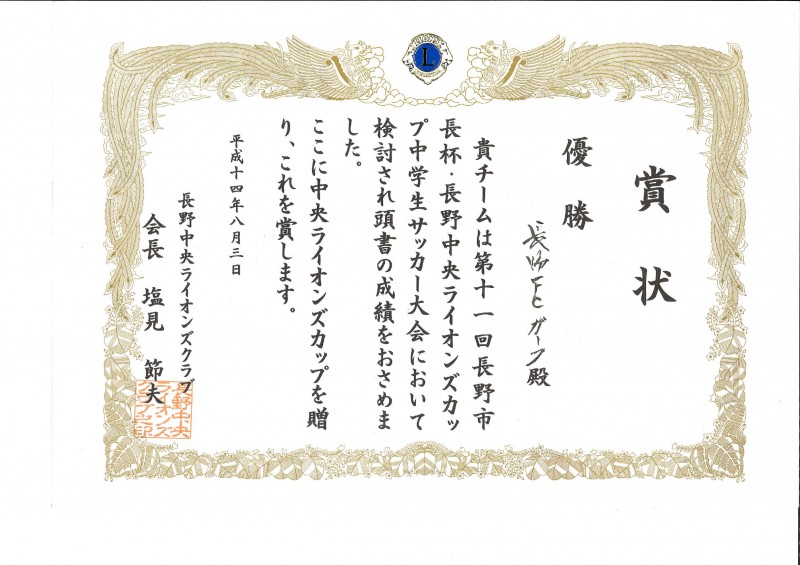 賞状
優勝
長野FCガーフ殿
貴チームは第十一回長野市
長杯・長野中央ライオンズカッ
プ中学生サッカー大会において
検討され頭書の成績をおさめま
した。
ここに中央ライオンズカップを贈
り、これを賞します。
平成十四年八月三日
長野中央ライオンズクラブ
会長 塩見 節夫
長野中央
ライオンズ
クラブ之印
L